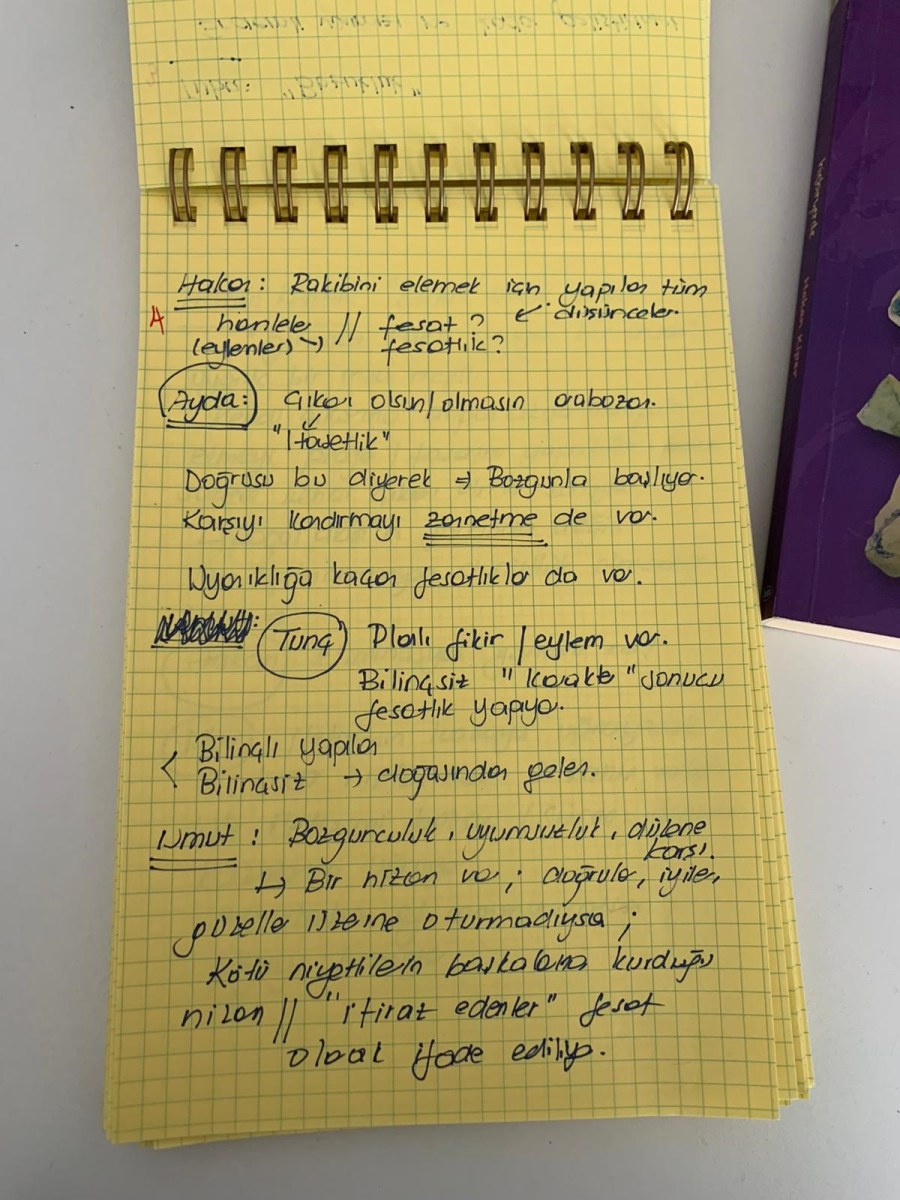 Hakan: Rakibini elemek için yapılan tüm
hamleler // fesat? ↙ düşünceler.
(eylemler) fesatlık?
Ayda: Çıkarı olsun/olmasın arabozan.
"İfsatlık"
Doğrusu bu diyerek ⇒ Bozgunla başlıyor.
Karşıyı kandırmayı zannetme de var.
Uyanıklığa kaçan fesatlıklar da var.
Tunç Planlı fikir / eylem var.
Bilinçsiz "karakter" sonucu
fesatlık yapıyor.
< Bilinçli yapılan
Bilinçsiz → doğasından gelen.
Umut: Bozgunculuk, uyumsuzluk, düzene
karşı.
↳ Bir nizam var; doğrular, iyiler,
güzeller üzerine oturmadıysa;
Kötü niyetlilerin başkalarına kurduğu
nizam // "itiraz edenler" fesat
olarak ifade ediliyor.
Hakan Kiper